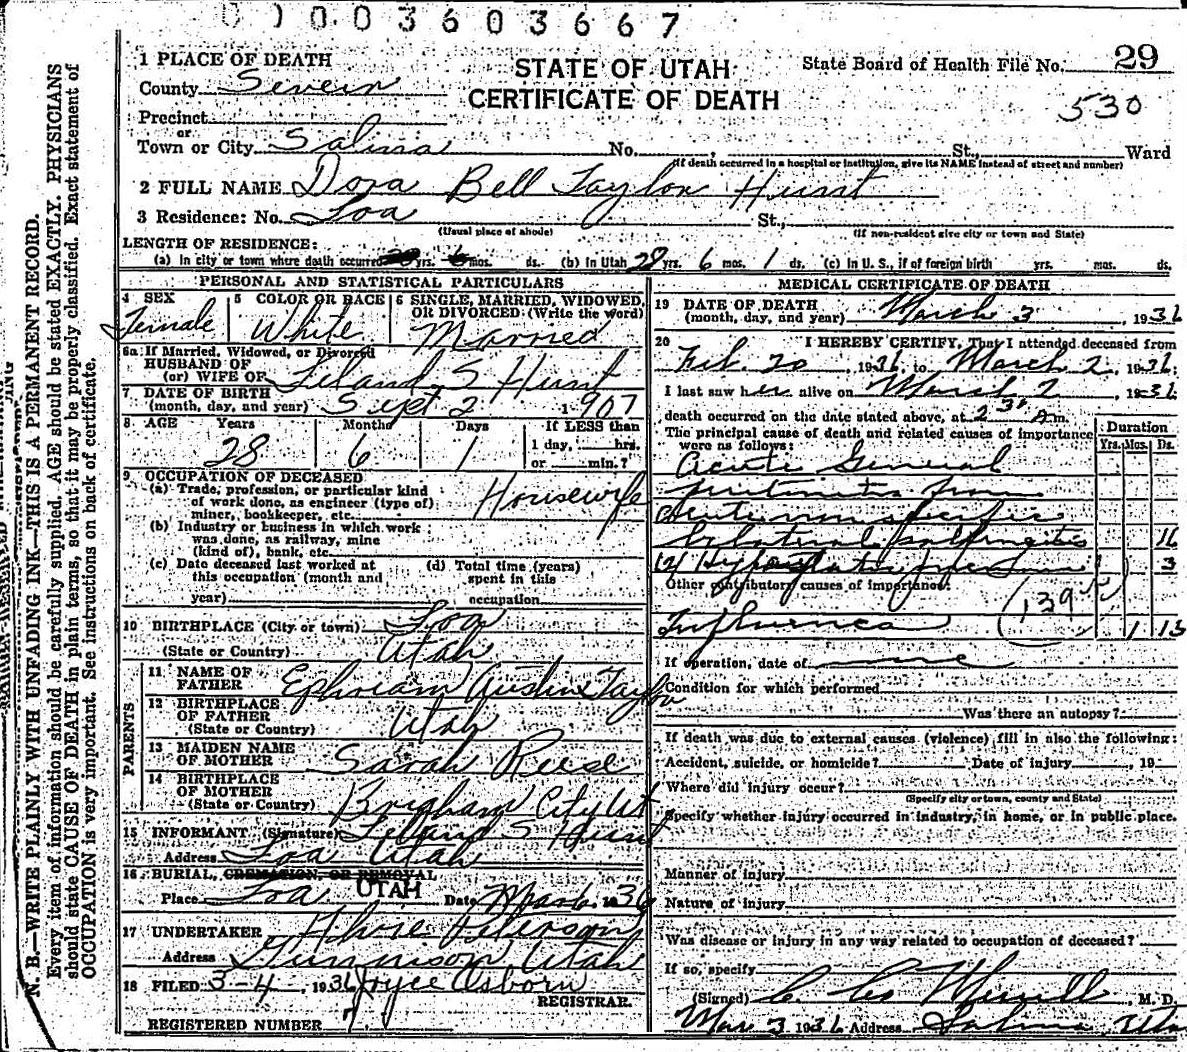 0 1 0 0 3 6 0 3 6 6 7
1 PLACE OF DEATH
STATE OF UTAH
CERTIFICATE OF DEATH
State Board of Health File No. 29
530
County Sevier
Precinct
or
Town or City Salina No. , St., Ward
(If death occurred in a hospital or institution, give its NAME instead of street and number)
2 FULL NAME Dora Bell Taylor Hunt
3 Residence: No. Loa St.,
(Usual place of abode) (If non-resident give city or town and State)
LENGTH OF RESIDENCE:
(a) In city or town where death occurred yrs. mos. ds. (b) In Utah 28 yrs. 6 mos. 1 ds. (c) In U. S., if of foreign birth yrs. mos. ds.
PERSONAL AND STATISTICAL PARTICULARS
4 SEX Female
5 COLOR OR RACE White
6 SINGLE, MARRIED, WIDOWED, OR DIVORCED (Write the word) Married
6a If Married, Widowed, or Divorced
HUSBAND OF
(or) WIFE OF Leland S Hunt
7 DATE OF BIRTH
(month, day, and year) Sept 2 1907
8 AGE Years Months Days If LESS than
28 6 1 1 day, hrs.
or min.?
9 OCCUPATION OF DECEASED
(a) Trade, profession, or particular kind of work done, as engineer (type of) miner, bookkeeper, etc. Housewife
(b) Industry or business in which work was done, as railway, mine (kind of), bank, etc.
(c) Date deceased last worked at this occupation (month and year)
(d) Total time (years) spent in this occupation
10 BIRTHPLACE (City or town) Loa
(State or Country) Utah
PARENTS
11 NAME OF FATHER Ephriam Austin Taylor
12 BIRTHPLACE OF FATHER
(State or Country) Utah
13 MAIDEN NAME OF MOTHER Sarah Reese
14 BIRTHPLACE OF MOTHER
(State or Country) Brigham City Ut
15 INFORMANT (Signature) Leland S Hunt
Address Loa Utah
16 BURIAL, CREMATION, OR REMOVAL
Place Loa UTAH Date Mar 6 1936
17 UNDERTAKER Peterson
Address Gunnison Utah
18 FILED 3-4, 1936 Joyce Osborn
REGISTRAR.
REGISTERED NUMBER 7
MEDICAL CERTIFICATE OF DEATH
19 DATE OF DEATH
(month, day, and year) March 3, 1936
20 I HEREBY CERTIFY, That I attended deceased from
Feb. 20, 1936, to March 2, 1936;
I last saw her alive on March 2, 1936;
death occurred on the date stated above, at 2 30 A m.
The principal cause of death and related causes of importance were as follows:
Duration
Yrs. Mos. Ds.
Acute General
peritonitis from
acute non specific
bilateral salpingitis 16
(2) Hypostatic pneumonia 3
Other contributory causes of importance:
(139)
Influenza 1 13
If operation, date of none
Condition for which performed
Was there an autopsy?
If death was due to external causes (violence) fill in also the following:
Accident, suicide, or homicide? Date of injury , 19
Where did injury occur?
(Specify city or town, county and State)
Specify whether injury occurred in industry, in home, or in public place.
Manner of injury
Nature of injury
Was disease or injury in any way related to occupation of deceased?
If so, specify
(Signed) , M. D.
Mar 3 1936 Address Salina, Utah
N. B.—WRITE PLAINLY WITH UNFADING INK—THIS IS A PERMANENT RECORD.
Every item of information should be carefully supplied. AGE should be stated EXACTLY. PHYSICIANS
should state CAUSE OF DEATH in plain terms, so that it may be properly classified. Exact statement of
OCCUPATION is very important. See instructions on back of certificate.